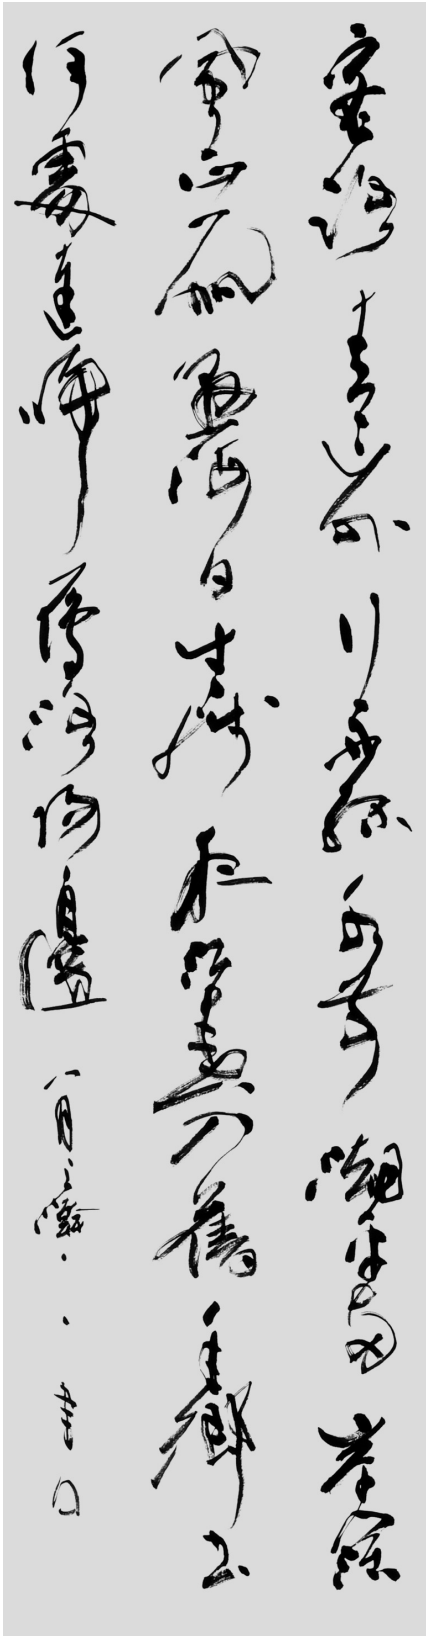 客路青山外行舟綠水前潮平兩岸闊
風正一帆懸海日生殘夜江春入舊年鄉書
何處達歸雁洛陽邊
八月之 書